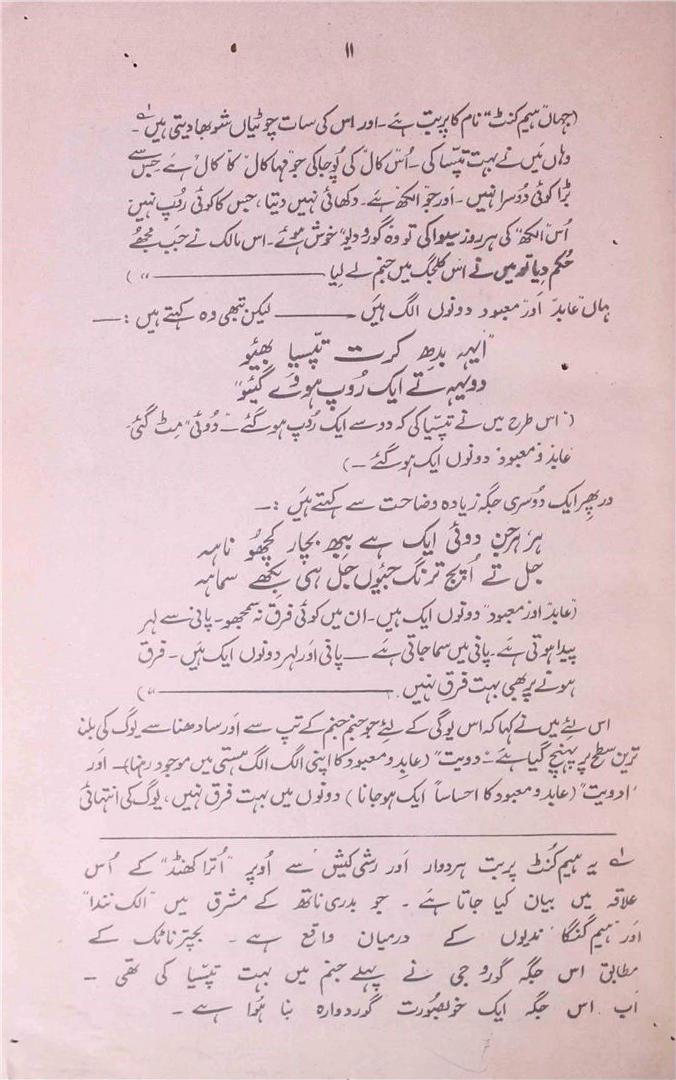 ۱۱
(جہاں "ہیم کنٹ" نام کا پربت ہے۔ اور اس کی سات چوٹیاں شوبھا دیتی ہیں ؂۱۔
وہاں مَیں نے بہت تپسّا کی۔ اُس کال کی پُوجا کی جو "مہاکال" کا "کال" ہے جس سے
بڑا کوئی دُوسرا نہیں۔ اَور جو الکھ ہے۔ دکھائی نہیں دیتا، جس کا کوئی رُوپ نہیں
اُس "الکھ" کی ہر روز سیوا کی تو وُہ گورو دیو "خوش ہوئے۔ اس مالک نے جب مجھے
حُکم دِیا تو میں نے اس کلجگ میں جنم لے لِیا ــــــــــــ" )
ہاں "عابد" اَور "معبود" دونوں الگ ہیں ــــــــ لیکن تبھی وہ کہتے ہیں :ــ
"ایہہ بدھِ کرت تپسیا بھیئو
دویہہ تے ایک رُوپ ہووَے گیئو"
("اس طرح میں نے تپسّیا کی کہ دو سے ایک رُوپ ہو گئے۔ "دُوئی" مِٹ گئی۔
عابد و معبود دونوں ایک ہو گئے ۔)
در پھر ایک دُوسری جگہ زیادہ وضاحت سے کہتے ہیں :ــ
ہر ہرجن دوئی ایک ہے ببھ بچار کچھُو ناہہ
جل تے اُپج ترنگ جیُوں جل ہی بِکھے سماہہ
("عابد اور معبود" دونوں ایک ہیں۔ ان میں کوئی فرق نہ سمجھو۔ پانی سے لہر
پیدا ہوتی ہے۔ پانی میں سما جاتی ہے ــــ پانی اَور لہر دونوں ایک ہیں۔ فرق
ہونے پر بھی بہت فرق نہیں ــــــــــــــــ")
اس لئے میں نے کہا کہ اس یوگی کے لئے جو جنم جنم کے تپ سے اَور سادھنا سے یوگ کی بلن
ترین سطح پر پہنچ گیا ہے۔ "دویت" (عابد و معبود کا اپنی الگ الگ ہستی میں موجود رہنا)۔ اور
"ادویت" (عابد و معبود کا احساساً ایک ہو جانا) دونوں میں بہت فرق نہیں، یوگ کی انتہائی
؂۱ یہ ہیم کُنٹ پربت ہردوار اَور رشی کیش سے اُوپر "اُتراکھنڈ" کے اُس
علاقہ میں بیان کیا جاتا ہے۔ جو بدری ناتھ کے مشرق میں "الک نندا"
اَور "ہیم گنگا" ندیوں کے درمیان واقع ہے۔ بچتر ناٹک کے
مطابق اس جگہ گورو جی نے پہلے جنم میں بہت تپسّیا کی تھی ۔
اَب اس جگہ ایک خوبصُورت گوردوارہ بنا ہُوا ہے ۔